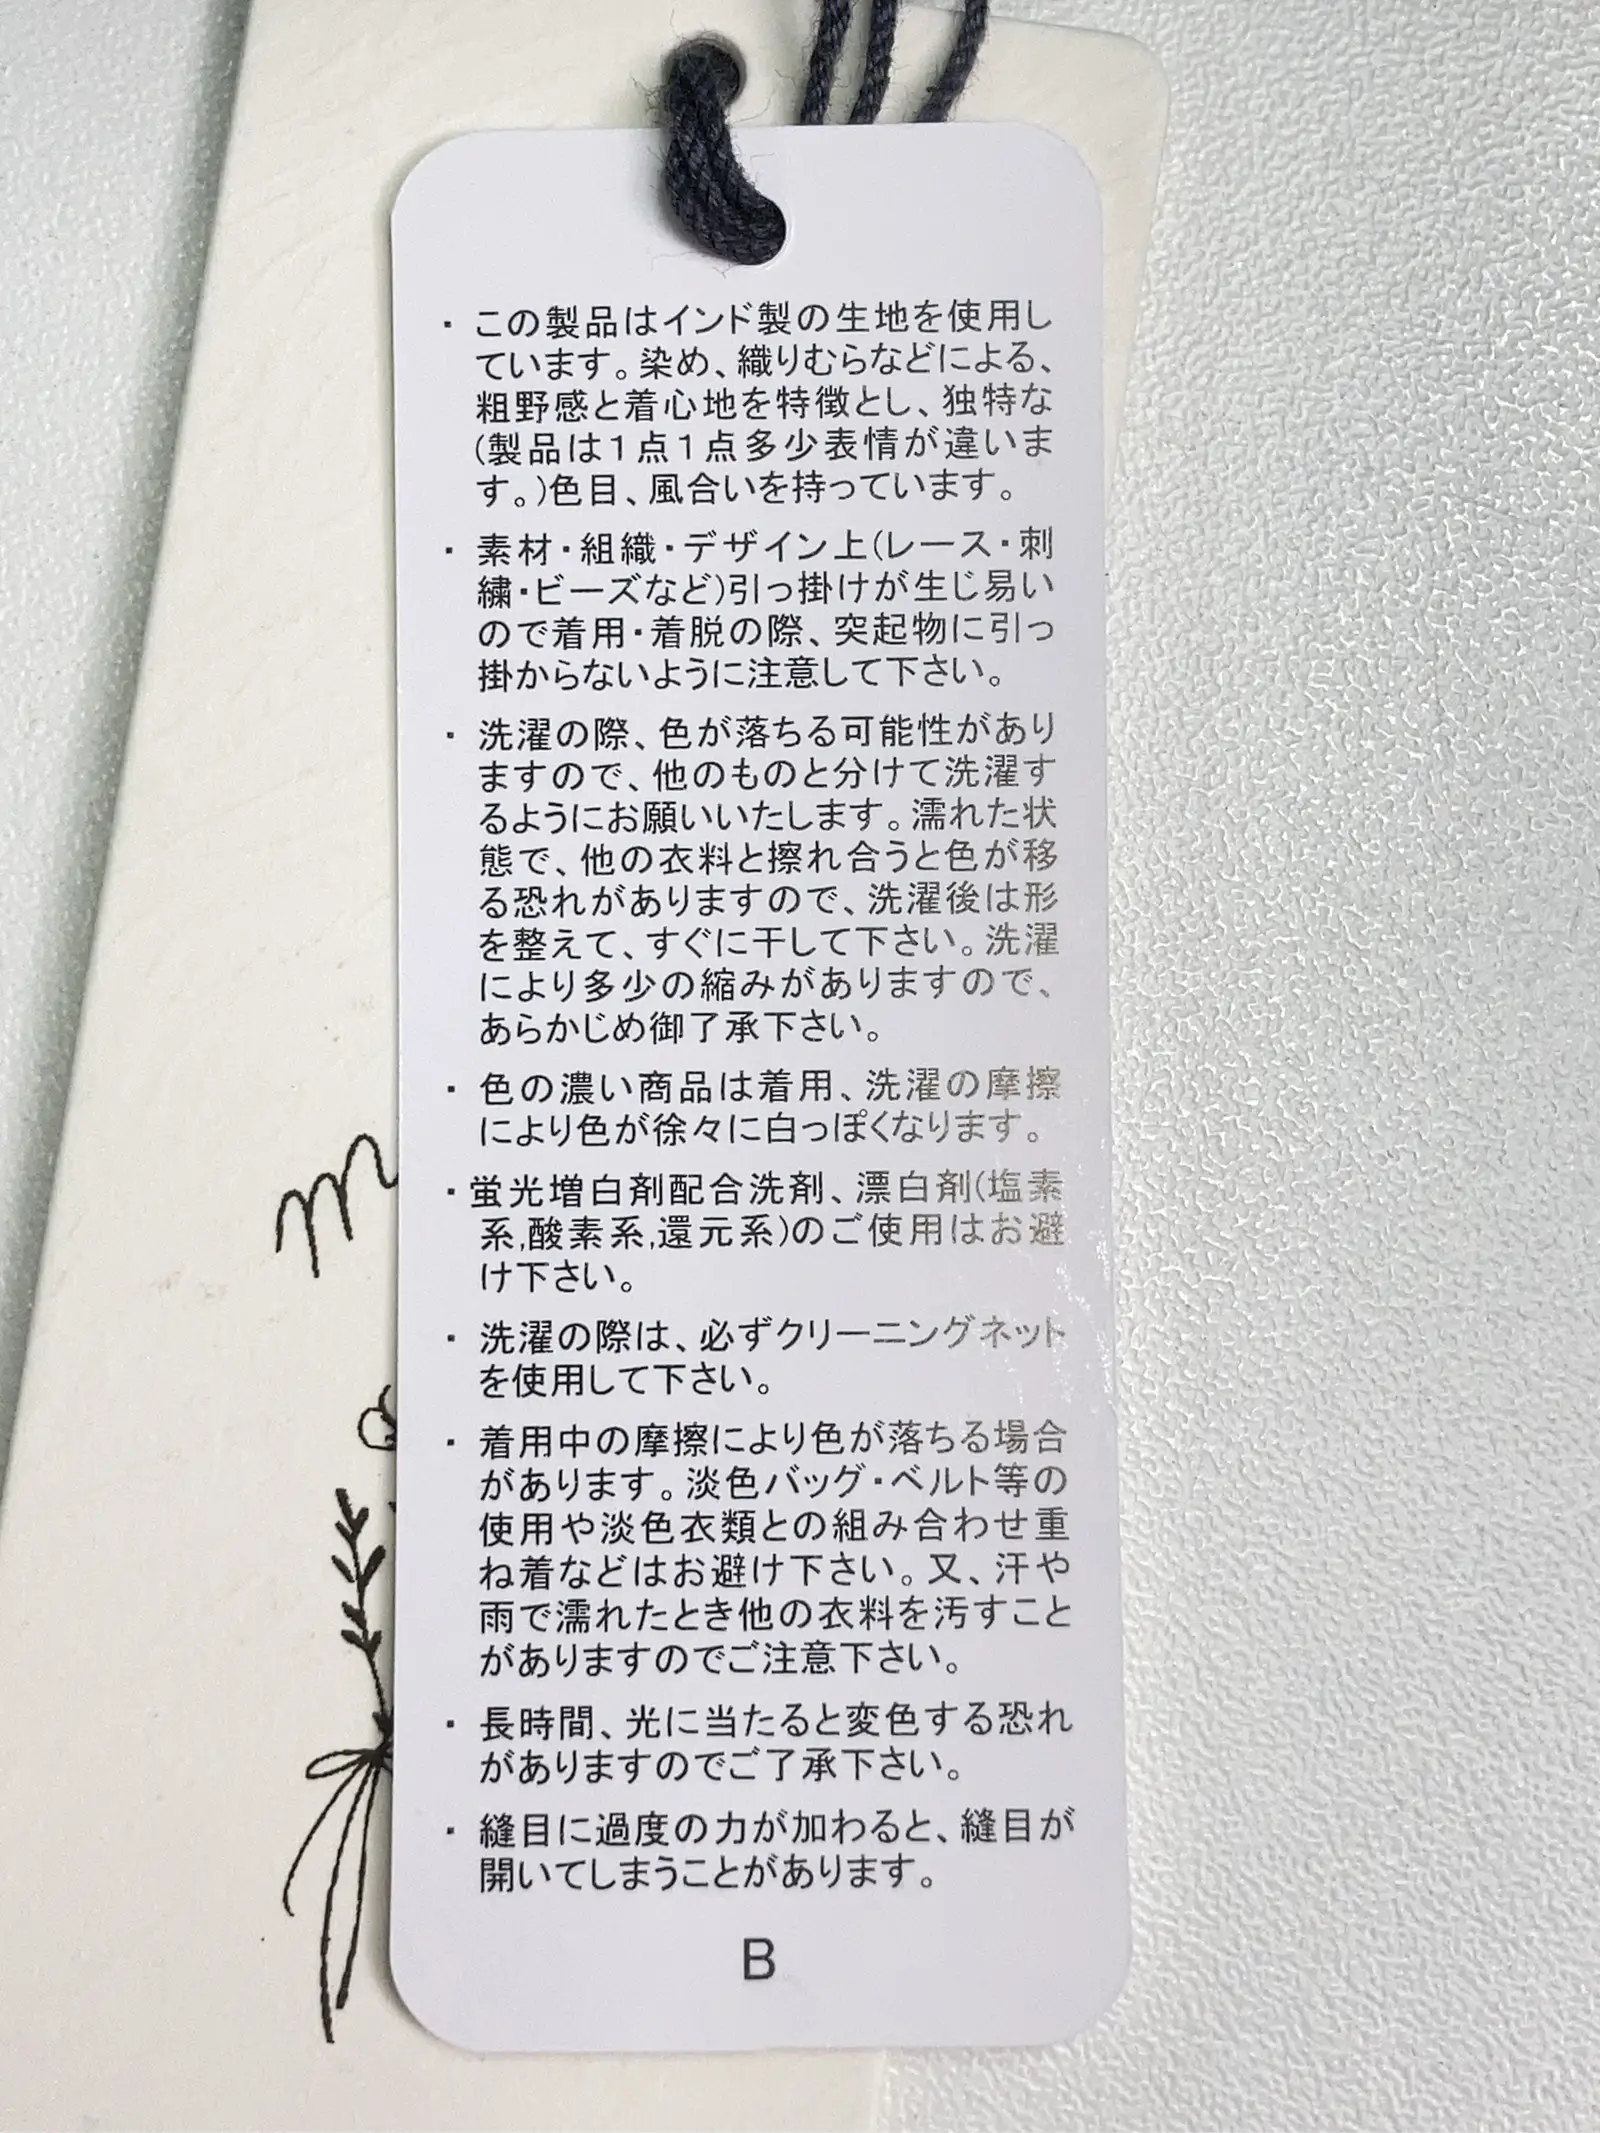 ・この製品はインド製の生地を使用し
ています。染め、織りむらなどによる、
粗野感と着心地を特徴とし、独特な
(製品は1点1点多少表情が違いま
す。)色目、風合いを持っています。
・素材・組織・デザイン上(レース・刺
繍・ビーズなど)引っ掛けが生じ易い
ので着用・着脱の際、突起物に引っ
掛からないように注意して下さい。
・洗濯の際、色が落ちる可能性があり
ますので、他のものと分けて洗濯す
るようにお願いいたします。濡れた状
態で、他の衣料と擦れ合うと色が移
る恐れがありますので、洗濯後は形
を整えて、すぐに干して下さい。洗濯
により多少の縮みがありますので、
あらかじめ御了承下さい。
・色の濃い商品は着用、洗濯の摩擦
により色が徐々に白っぽくなります。
・蛍光増白剤配合洗剤、漂白剤(塩素
系,酸素系,還元系)のご使用はお避
け下さい。
・洗濯の際は、必ずクリーニングネット
を使用して下さい。
・着用中の摩擦により色が落ちる場合
があります。淡色バッグ・ベルト等の
使用や淡色衣類との組み合わせ重
ね着などはお避け下さい。又、汗や
雨で濡れたとき他の衣料を汚すこと
がありますのでご注意下さい。
・長時間、光に当たると変色する恐れ
がありますのでご了承下さい。
・縫目に過度の力が加わると、縫目が
開いてしまうことがあります。
B
m